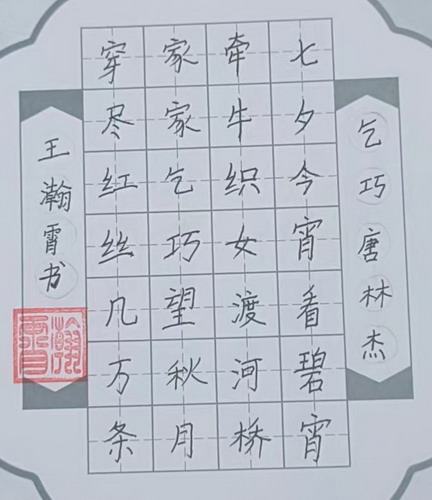 乞巧唐林杰
七夕今宵看碧宵
牵牛织女渡河桥
家家乞巧望秋月
穿尽红丝几万条
王瀚霄书
瀚霄